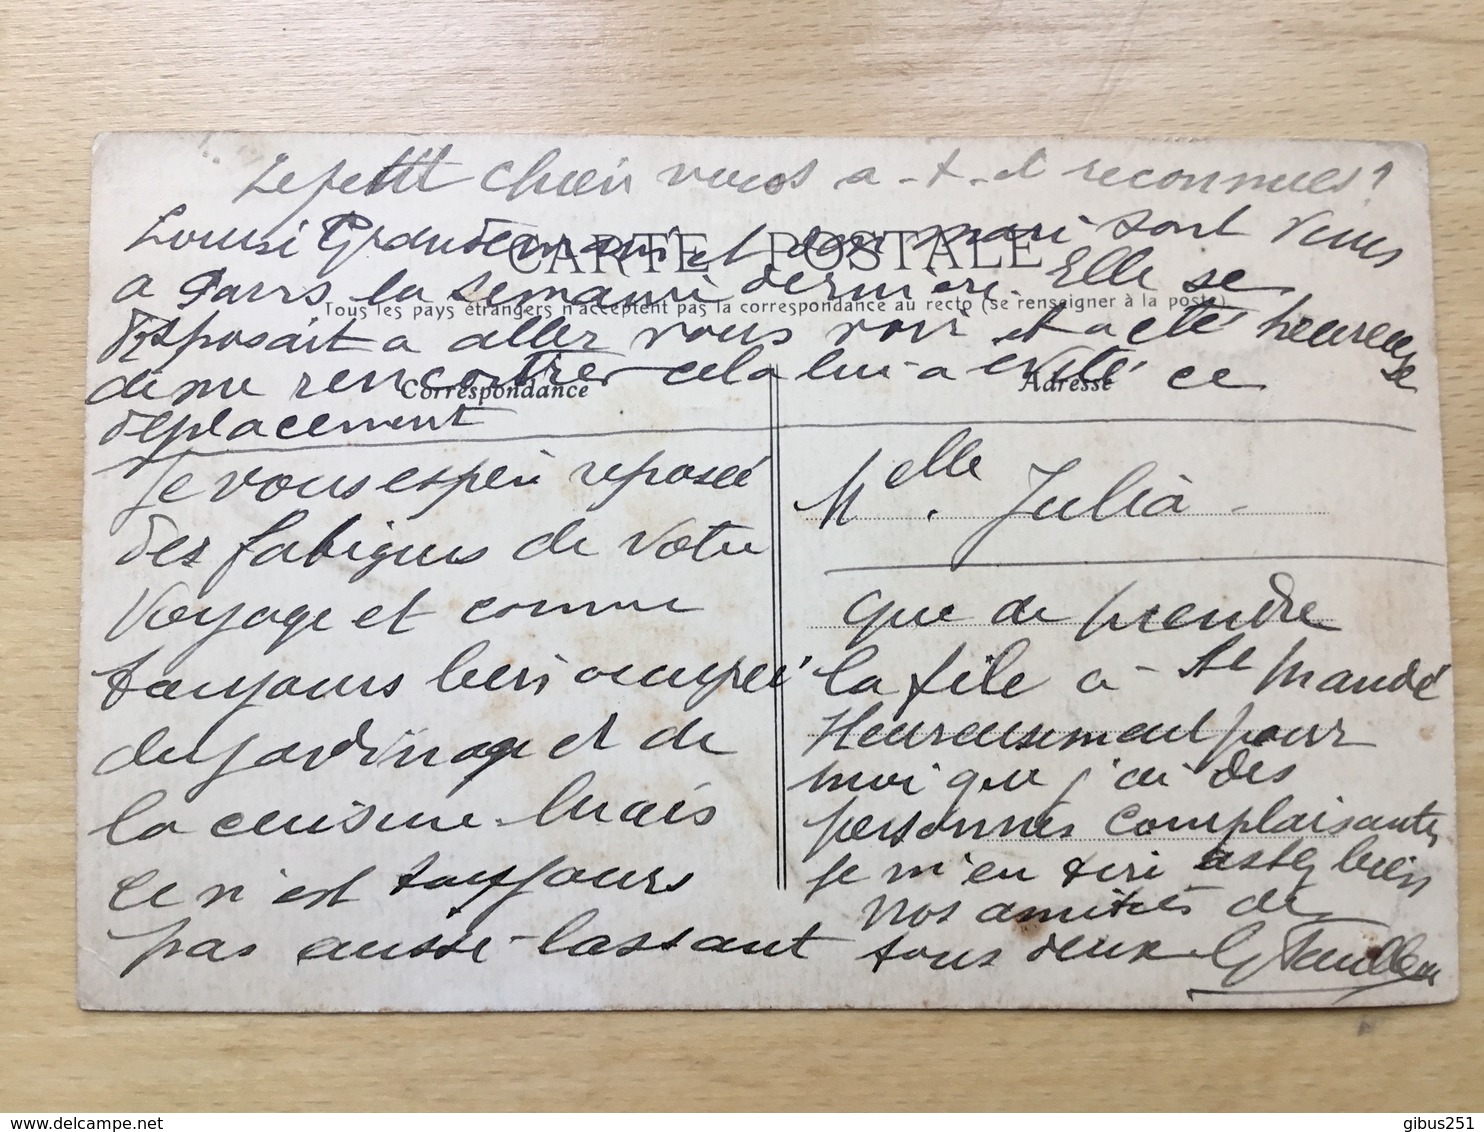 Le petit chien vous a-t-il reconnues?
Louise et son mari sont venus
a Paris la semaine dernière. Elle se
disposait a aller vous voir et a été heureuse
de me rencontrer cela lui a évité ce
déplacement
CARTE POSTALE
Tous les pays étrangers n'acceptent pas la correspondance au recto (se renseigner à la poste)
Correspondance
Adresse
Je vous espère reposée
des fatigues de votre
voyage et comme
toujours bien occupée
de jardinage et de
la cuisine. Mais
ce n'est toujours
pas aussi lassant
Melle. Julia.
que de prendre
la file a St Mandé
Heureusement pour
moi que j'ai des
personnes complaisantes
je m'en tire assez bien
Nos amitiés de
tous deux
gibus251